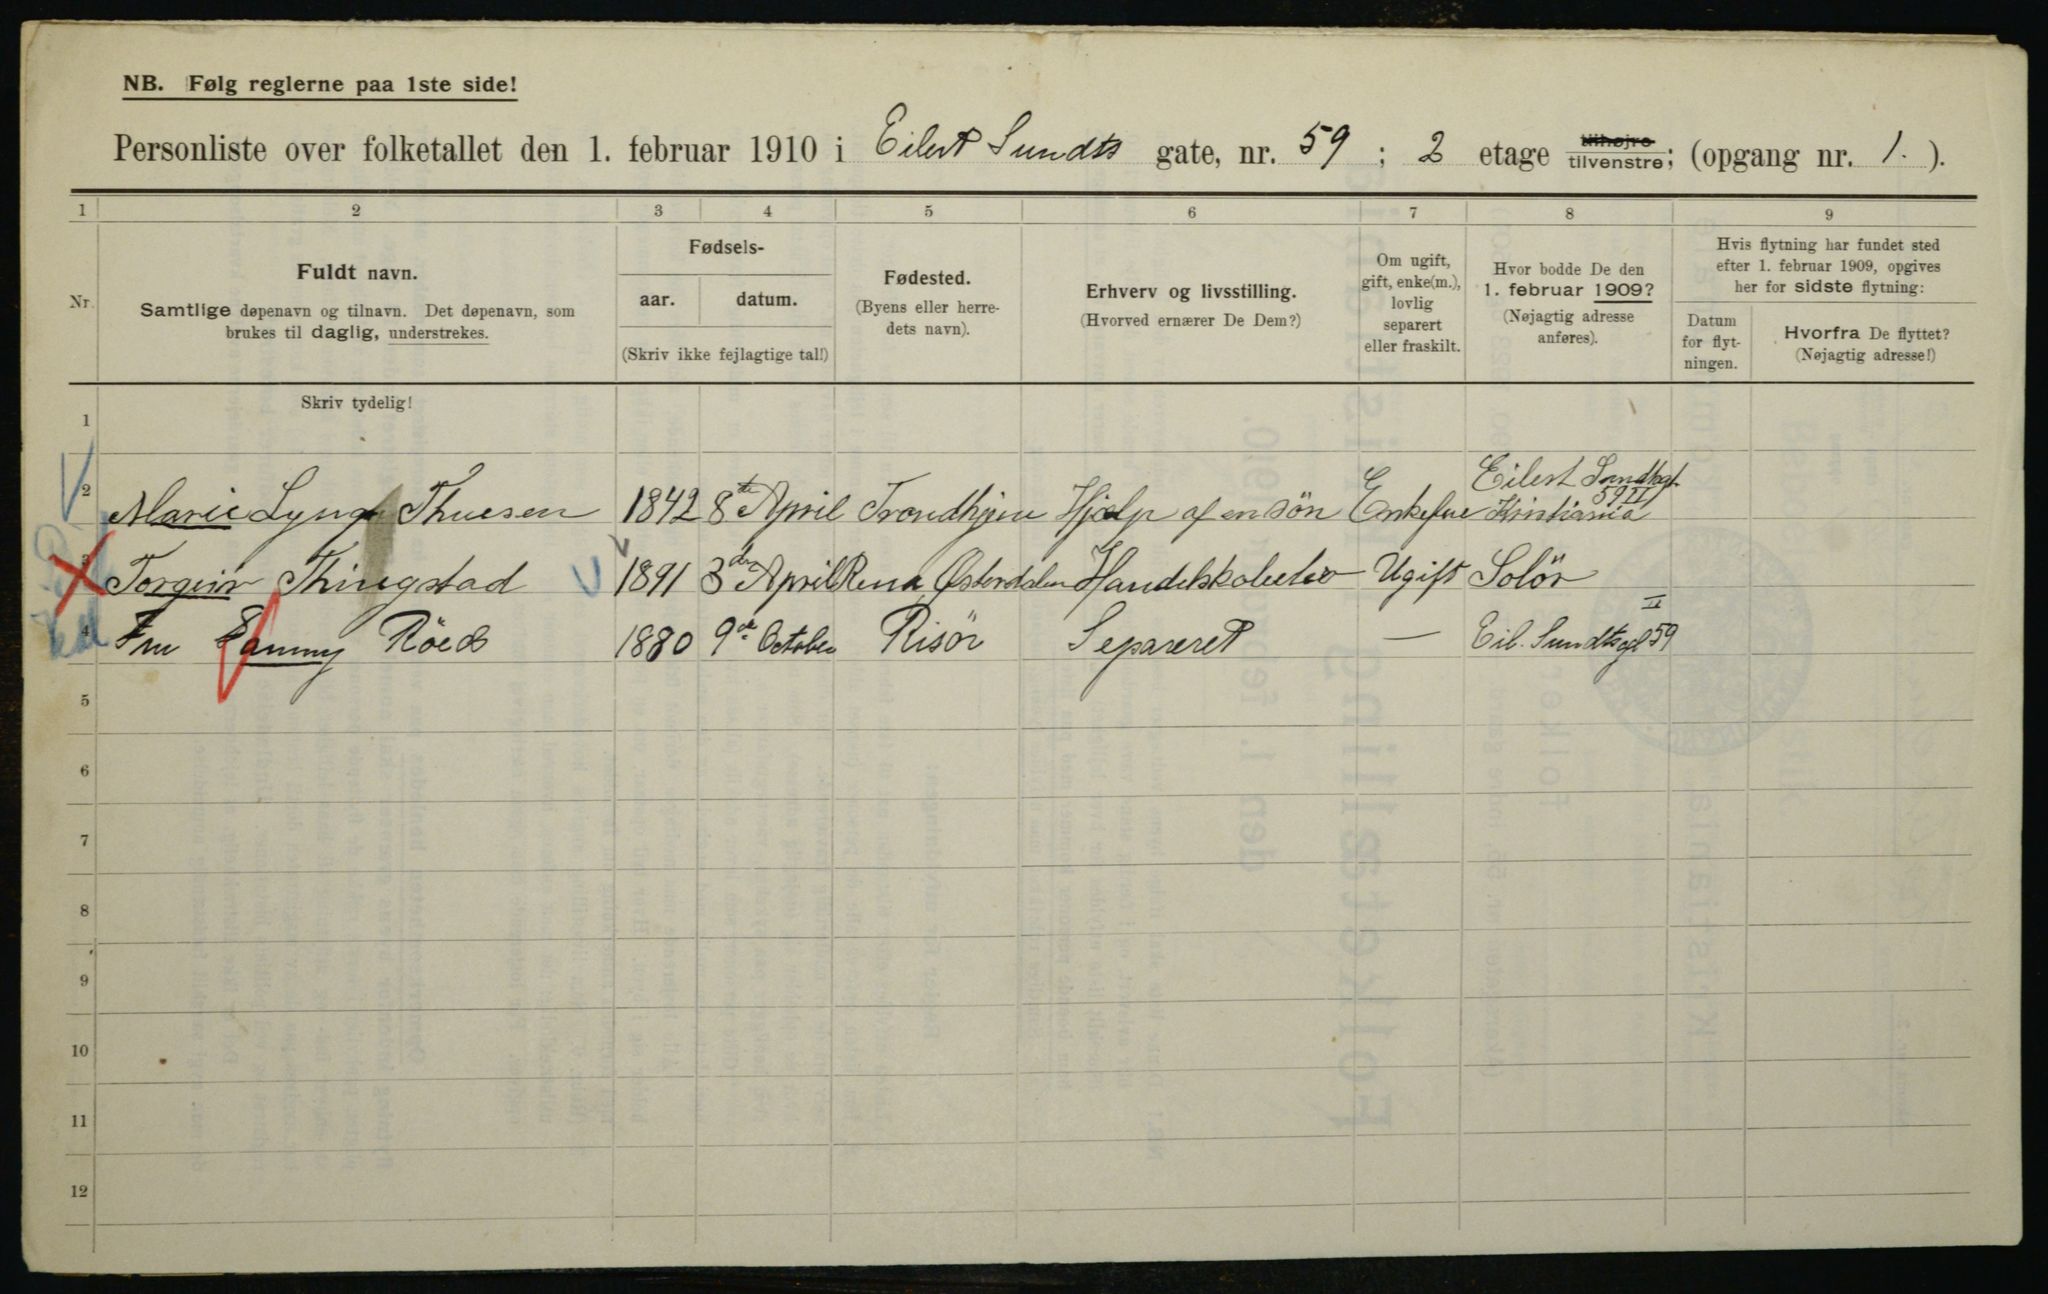 NB. Følg reglerne paa 1ste side!
Personliste over folketallet den 1. februar 1910 i Eilert Sundts gate, nr. 59 ; 2 etage tilhøjre tilvenstre; (opgang nr. 1. ).
1 2 3 4 5 6 7 8 9
Nr.
Fuldt navn.
Samtlige døpenavn og tilnavn. Det døpenavn, som
brukes til daglig, understrekes.
Fødsels-
aar. datum.
(Skriv ikke fejlagtige tal!)
Fødested.
(Byens eller herre-
dets navn).
Erhverv og livsstilling.
(Hvorved ernærer De Dem?)
Om ugift,
gift, enke(m.),
lovlig
separert
eller fraskilt.
Hvor bodde De den
1. februar 1909?
(Nøjagtig adresse
anføres).
Hvis flytning har fundet sted
efter 1. februar 1909, opgives
her for sidste flytning:
Datum
for flyt-
ningen.
Hvorfra De flyttet?
(Nøjagtig adresse!)
Skriv tydelig!
1
2 Marie Lyng Thuesen 1842 8de April Trondhjem Hjælp af en sön Enkefrue Eilert Sundtsgt. 59 II Kristiania
3 Torgeir Thingstad 1891 3de April Rena Østerdalen Ugift Solör
4 Fru Fanny Röed 1880 9de October Risör Separeret — Eil. Sundtsgt 59 II
5
6
7
8
9
10
11
12